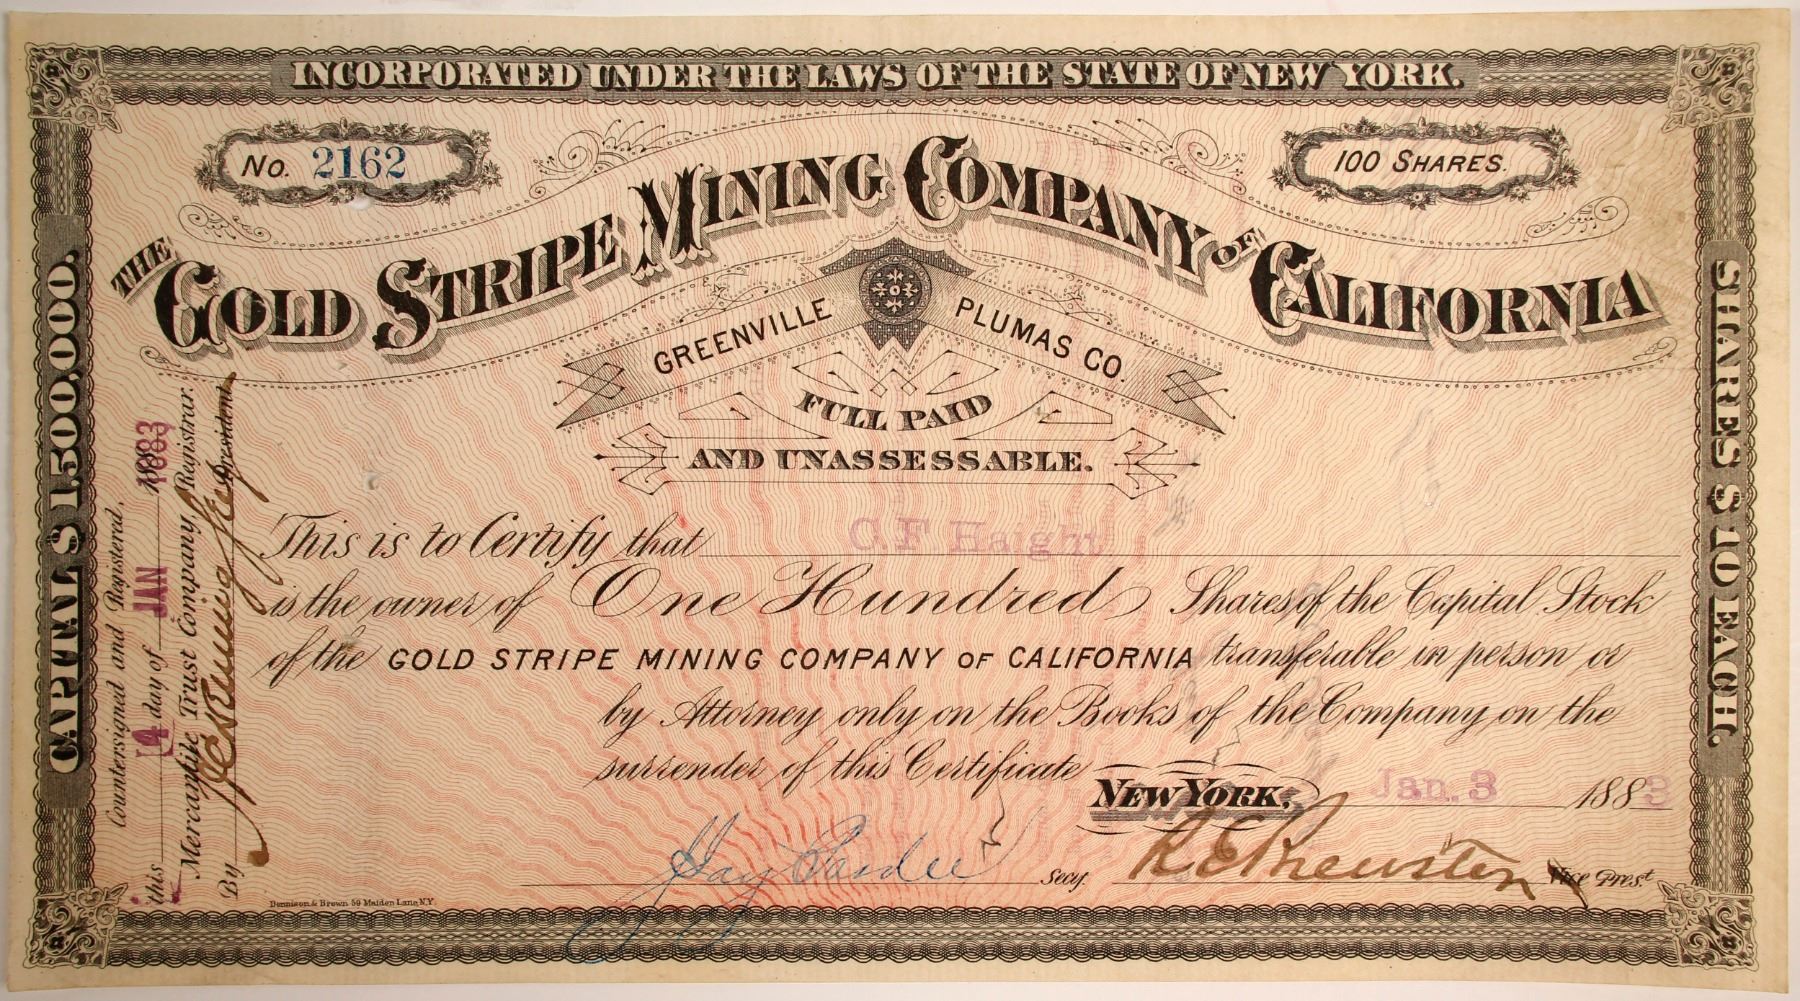 INCORPORATED UNDER THE LAWS OF THE STATE OF NEW YORK.
No. 2162
100 SHARES.
THE GOLD STRIPE MINING COMPANY OF CALIFORNIA
GREENVILLE PLUMAS CO.
FULL PAID
AND UNASSESSABLE.
CAPITAL $1,500,000.
SHARES $10 EACH.
Countersigned and Registered,
this 14 day of JAN 1883
Mercantile Trust Company, Registrar.
By President
This is to Certify that C.F Haight
is the owner of One Hundred Shares of the Capital Stock
of the GOLD STRIPE MINING COMPANY OF CALIFORNIA transferable in person or
by Attorney only on the Books of the Company on the
surrender of this Certificate
NEW YORK, Jan. 3 1883
Secy. R E Brewster Vice Prest
Dennison & Brown 59 Maiden Lane N.Y.